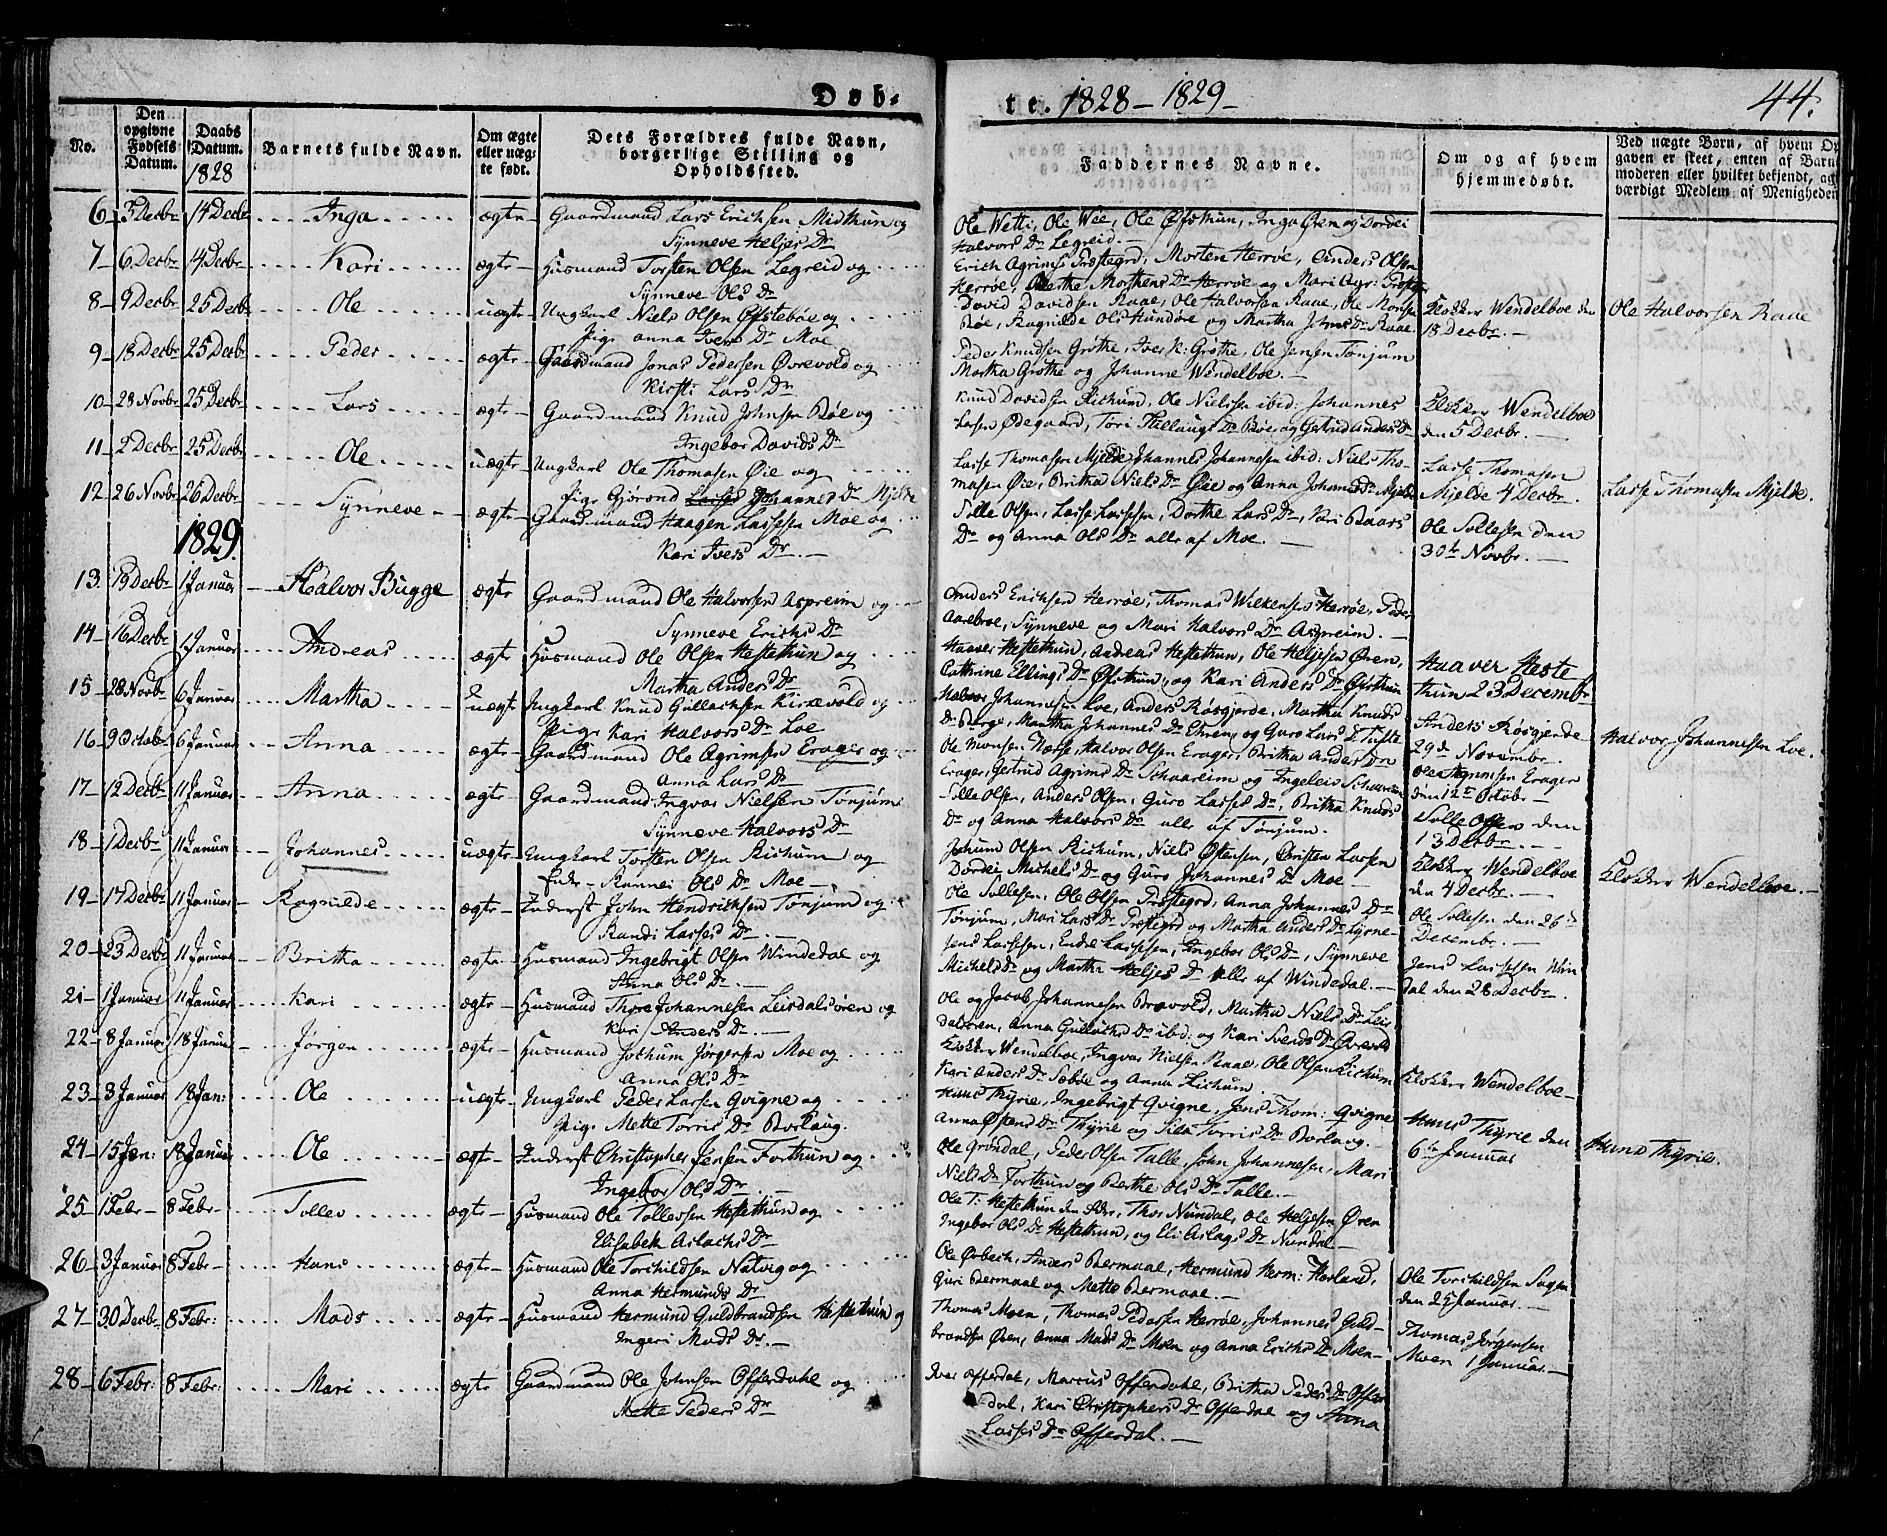 Døb-
te. 1828 - 1829 -
44.
No.
Den opgivne Fødsels Datum.
Daabs Datum.
1828
Barnets fulde Navn.
Om ægte eller uægte født.
Dets Forældres fulde Navn, borgerlige Stilling og Opholdssted.
Faddernes Navne.
Om og af hvem hjemmedøbt.
Ved uægte Børn, af hvem Opgaven er skeet, enten af Barnemoderen eller hvilket bekjendt, agtværdigt Medlem af Menigheden
6 5 Decbr 14 Decbr Inga ægte Gaardmand Lars Erichsen Midthun og
Synneve Heljes Dr
Ole Wetti, Ole Wee, Ole Øfsthun, Inga Øren og Dordei
Halvors Dr Legreid.
7 6 Decbr 14 Decbr Kari ægte Husmand Torsten Olsen Legreid og
Synneve Ols Dr
Erich Agrims Præstegrd, Morten Herrøe, Anders Olsen
Herrøe, Marthe Morthens Dr Herrøe og Mari Agr: Præstegr
8 9 Decbr 25 Decbr Ole uægte Ungkarl Niels Olsen Øfstebøe og
Pige Anna Ivers Dr Moe
David Davidsen Raae, Ole Halvorsen Raae, Ole Monsen
Bøe, Ragnilde Ols Hundøre og Martha Johns Dr Raae
Klokker Wendelboe den
18 Decbr.
Ole Halvorsen Raae
9 18 Decbr 25 Decbr Peder ægte Gaardmand Jonas Pedersen Ørevold og
Kirsti Lars Dr
Peder Knudsen Grøthe, Iver K: Grøthe, Ole Jensen Tønjum
Martha Grøthe og Johanne Wendelboe.
10 28 Novbr 25 Decbr Lars ægte Gaardmand Knud Johnsen Bøe og
Ingebor Davids Dr
Knud Davidsen Richum, Ole Nielsen ibid: Johannes
Larsen Ødegaard, Tori Thellaugs Dr Bøe og Gertrud Anders Dr
Klokker Wendelboe
den 5 Decbr.
11 2 Decbr 25 Decbr Ole uægte Ungkarl Ole Thomasen Øie og
Pige Gjørond Lasses Johannes Dr Mjelde
Lasse Thomasen Mjelde, Johannes Johannesen ibid: Niels Tho-
masen Øie, Britha Niels Dr Øie og Anna Johannes Dr Mjelde
Lasse Thomasen
Mjelde 4 Decbr.
Lasse Thomasen Mjelde.
12 26 Novbr 26 Decbr Synneve ægte Gaardmand Haagen Lassesen Moe og
Kari Ivers Dr
Solle Olsen, Lasse Lassesen, Dorthe Lars Dr, Kari Baars
Dr og Anna Ols Dr alle af Moe.
Ole Sollesen den
30te Novbr.
1829
13. 19 Decbr 1 Januar Halvor Bugge ægte Gaardmand Ole Halvorsen Aspreim og
Synneve Erichs Dr
Anders Erichsen Herrøe, Thomas Wilkensen Herrøe, Peder
Aarebroe, Synneve og Mari Halvors Dr Aspreim.
14 16 Decbr 1 Januar Andreas ægte Husmand Ole Olsen Hestethun og
Martha Anders Dr
Haaver Hestethun, Andreas Hestethun, Ole Heljesen Øren,
Cathrine Ellings Dr Øfsthun, og Kari Anders Dr Øfsthun
Haaver Heste
thun 23 Decembr
15 28 Novbr 6 Januar Martha uægte Ungkarl Knud Gullachsen Kirkevold og
Pige Kari Halvors Dr Loe
Halvor Johannesen Loe, Anders Røsgjerde, Martha Knuds
Dr Berge, Martha Johannes Dr Ethren og Guro Lars Dr Tufte
Anders Røsgjerde
29de Novembr
Halvor Johannesen Loe.
16 9 Octob 6 Januar Anna ægte Gaardmand Ole Agrimsen Erager og
Anna Lars Dr
Ole Monsen Næsse, Halvor Olsen Erager, Britha Anders Dr
Erager, Gertrud Agrims Dr Schaareim og Ingeleiv Schaareim
Ole Agrimsen Erager
den 12te Octobr
17 12 Decbr 11 Januar Anna ægte Gaardmand Ingvar Nielsen Tønjum
Synneve Halvors Dr
Solle Olsen, Anders Olsen, Guro Lasses Dr, Britha Knuds
Dr og Anna Halvors Dr alle af Tønjum.
Solle Olsen den
13 Decbr.
18 1 Decbr 11 Januar Johannes uægte Ungkarl Torsten Olsen Richum og
Enke Rannei Ols Dr Moe
Jochum Olsen Richum, Niels Østensen, Christen Larsen
Dordei Michels Dr og Guro Johannes Dr Moe
Klokker Wendelboe
den 4 Decbr.
Klokker Wendelboe.
19 17 Decbr 11 Januar Ragnilde ægte Inderst John Hendrichsen Tønjum og
Randi Lasses Dr
Ole Sollesen, Ole Olsen Præstegrd, Anna Johannes Dr
Tønjum, Mari Lars Dr Præstegrd og Martha Anders Dr Lyrne
Ole Sollesen den 26de
Decembr.
20 23 Decbr 11 Januar Britha ægte Husmand Ingebrigt Olsen Windedal og
Anna Ols Dr
Jens Lassesen, Endre Lassesen, Ingebor Ols Dr, Synneve
Michels Dr og Martha Heljes Dr alle af Windedal.
Jens Lassesen Win
dal den 28 Decbr.
21 1 Januar 11 Januar Kari ægte Husmand Thore Johannesen Leirdalsøren og
Kari Anders Dr
Ole og Jacob Johannesen Brævold, Martha Niels Dr Leir
dalsøren, Anna Gullachs Dr ibid: og Kari Svends Dr Ørevold
22 8 Januar 18 Januar Jørgen ægte Husmand Jochum Jørgensen Moe og
Anna Ols Dr
Klokker Wendelboe, Ingvar Nielsen Raae, Ole Olsen Richum
Kari Anders Dr Sæbøe og Anna Richum
Klokker Wendelboe
23 3 Januar 18 Jan: Ole uægte Ungkarl Peder Larsen Qvigne og
Pige Mette Torris Dr Borlaug.
Hans Thyrie, Ingebrigt Qvigne, Jens Thom: Qvigne
Anna Østens Dr Thyrie og Sila Torris Dr Borlaug.
Hans Thyrie den
6te Januar
Hans Thyrie.
24 15 Jan: 18 Januar Ole ægte Inderst Christopher Jensen Forthun og
Ingebor Ols Dr
Ole Grøndal, Peder Olsen Talle, John Johannesen, Mari
Niels Dr Forthun og Berthe Ols Dr Talle.
25 1 Febr 8 Febr Tollev ægte Husmand Ole Tollevsen Hestethun og
Elisabeth Aslachs Dr
Ole T: Hestethun den Ældre, Thor Nundal, Ole Heljesen Øren
Ingebor Ols Dr Hestethun, og Eli Aslags Dr Nundal
26 3 Januar 8 Febr Hans ægte Husmand Ole Torchildsen Natvig og
Anna Hermunds Dr
Ole Ørbech, Anders Bermaal, Hermund Herm: Hæreland,
Guri Bermaal og Mette Bermaal.
Ole Torchildsen Sogn
den 25 Januar.
27 30 Decbr 8 Febr: Mads ægte Husmand Hermund Guldbrandsen Hestethun og
Ingeri Mads Dr.
Thomas Moen, Thomas Pedersen Herrøe, Johannes Guld-
brandsen Øren, Anna Mads Dr Moen og Anna Erichs Dr Moen
Thomas Jørgensen
Moen 1 Januar.
28 6 Febr: 8 Febr: Mari ægte Gaardmand Ole Johnsen Offerdahl og
Mette Peders Dr
Iver Offerdal, Marcus Offerdahl, Britha Peders Dr Offer
dal, Kari Christophers Dr Offerdal og Anna
Lasses Dr Offerdal.